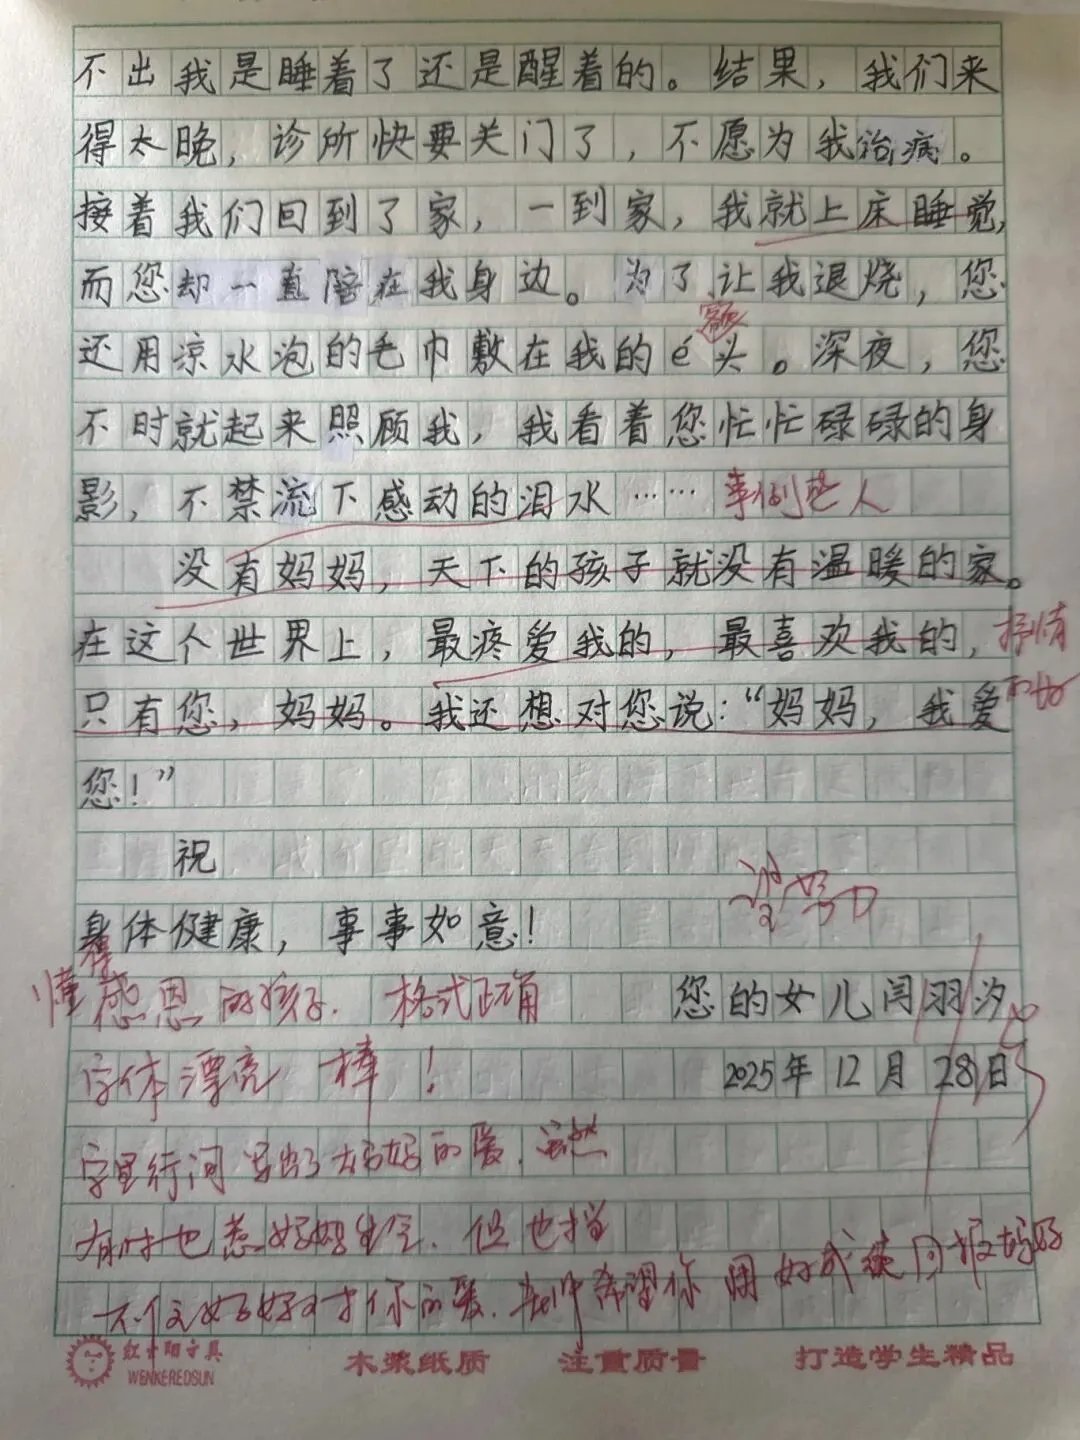 不出我是睡着了还是醒着的。结果，我们来
得太晚，诊所快要关门了，不愿为我治病。
接着我们回到了家，一到家，我就上床睡觉，
而您却一直陪在我身边。为了让我退烧，您
额
还用凉水泡的毛巾敷在我的é头。深夜，您
不时就起来照顾我，我看着您忙忙碌碌的身
影，不禁流下感动的泪水……
事例感人
没有妈妈，天下的孩子就没有温暖的家。
在这个世界上，最疼爱我的，最喜欢我的，
抒情
只有您，妈妈。我还想对您说：“妈妈，我爱
您！”
祝
身体健康，事事如意！
懂感恩的孩子. 格式正确
您的女儿闫羽汐
字体漂亮 棒！
2025年12月28日
字里行间写出了对妈妈的爱. 虽然
有时也惹妈妈生气. 但也挡
不住妈妈对你的爱. 老师希望你用好成绩回报妈妈
红太阳文具
WENKEREDSUN
木浆纸质
注重质量
打造学生精品